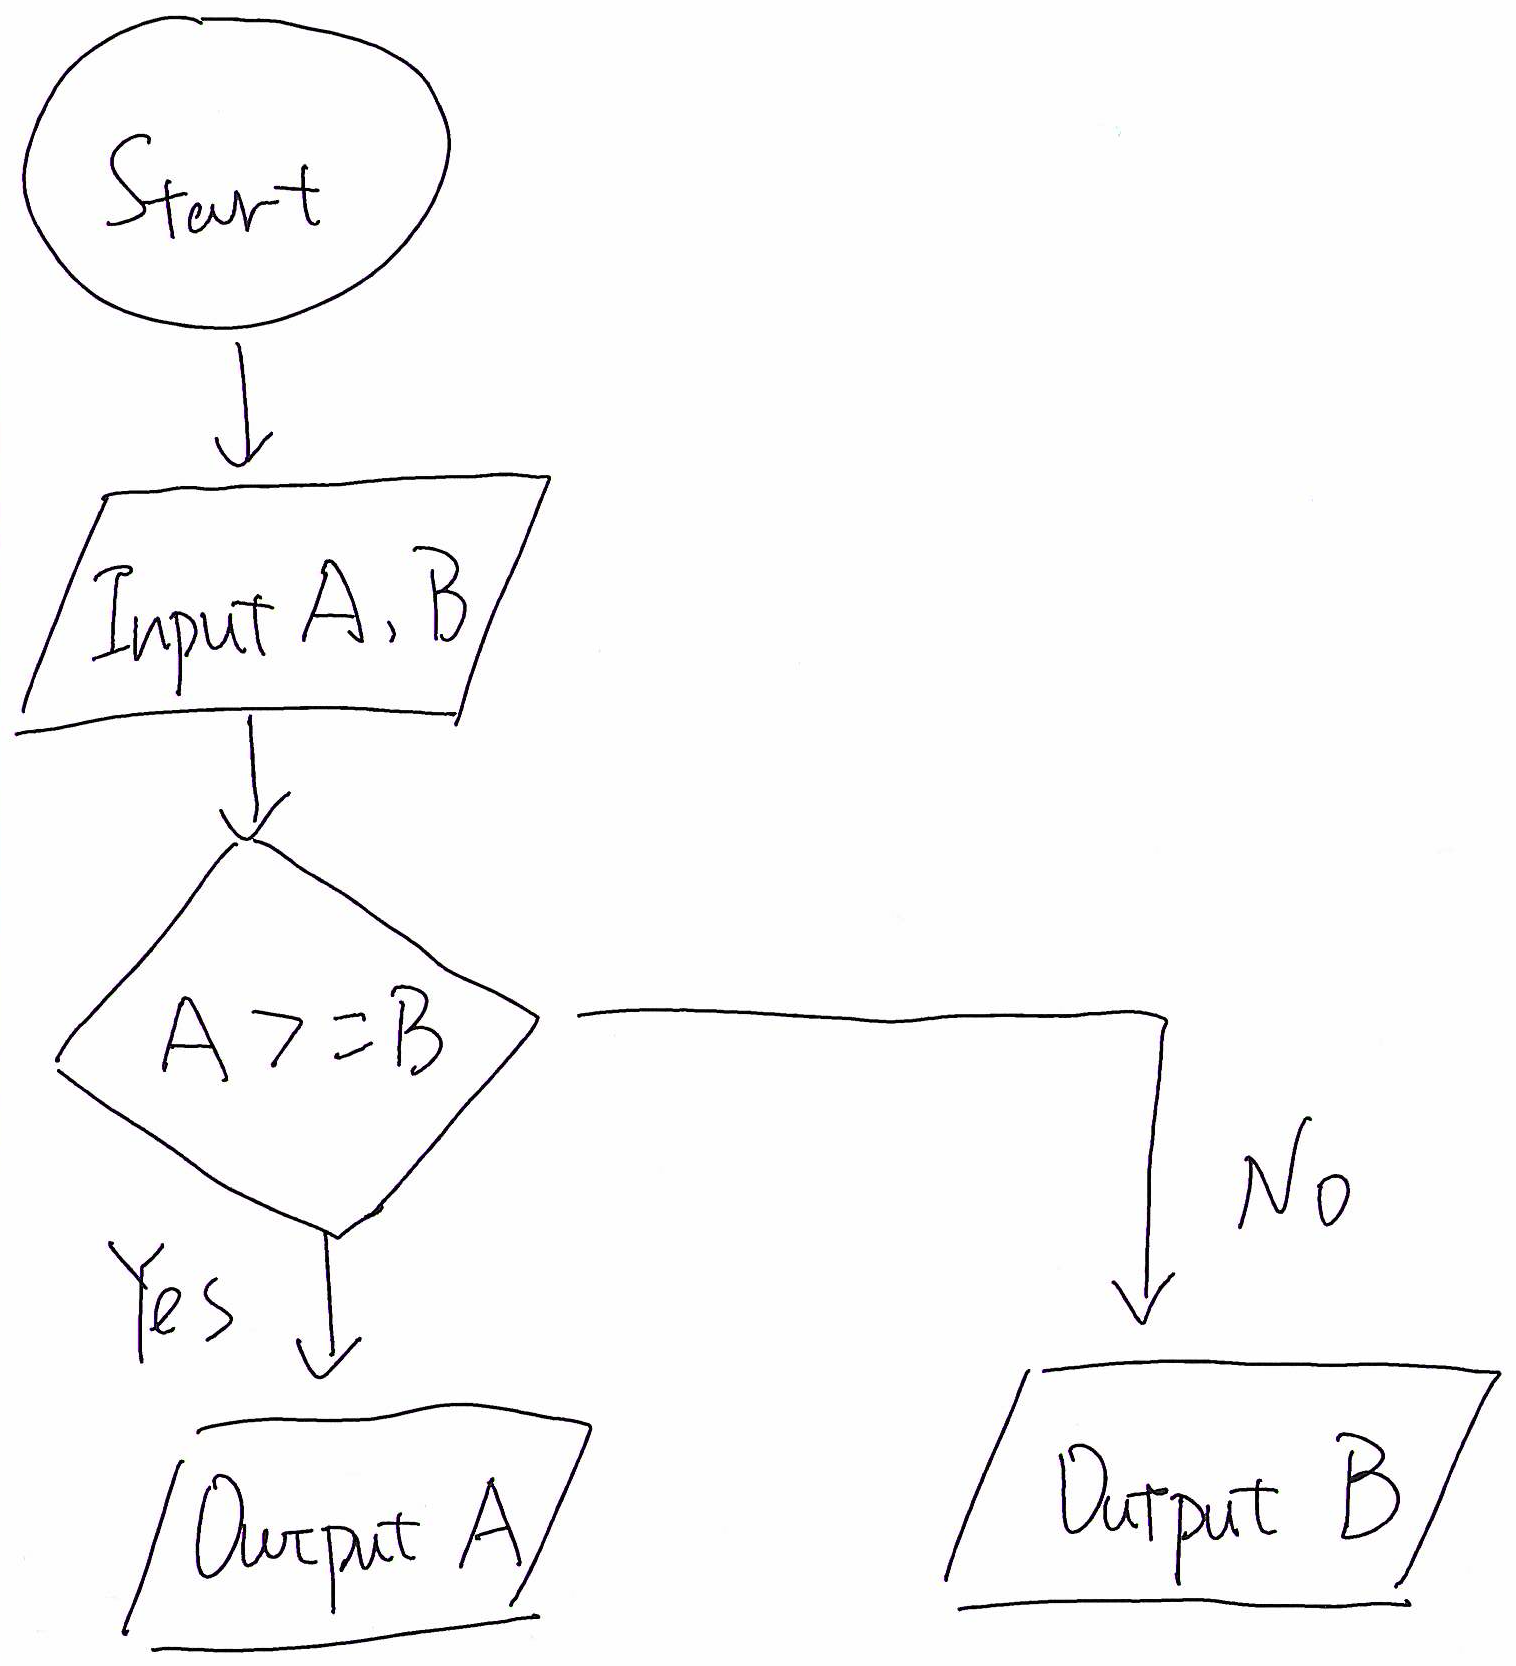 Start
Input A, B
A >= B
Yes
No
Output A
Output B